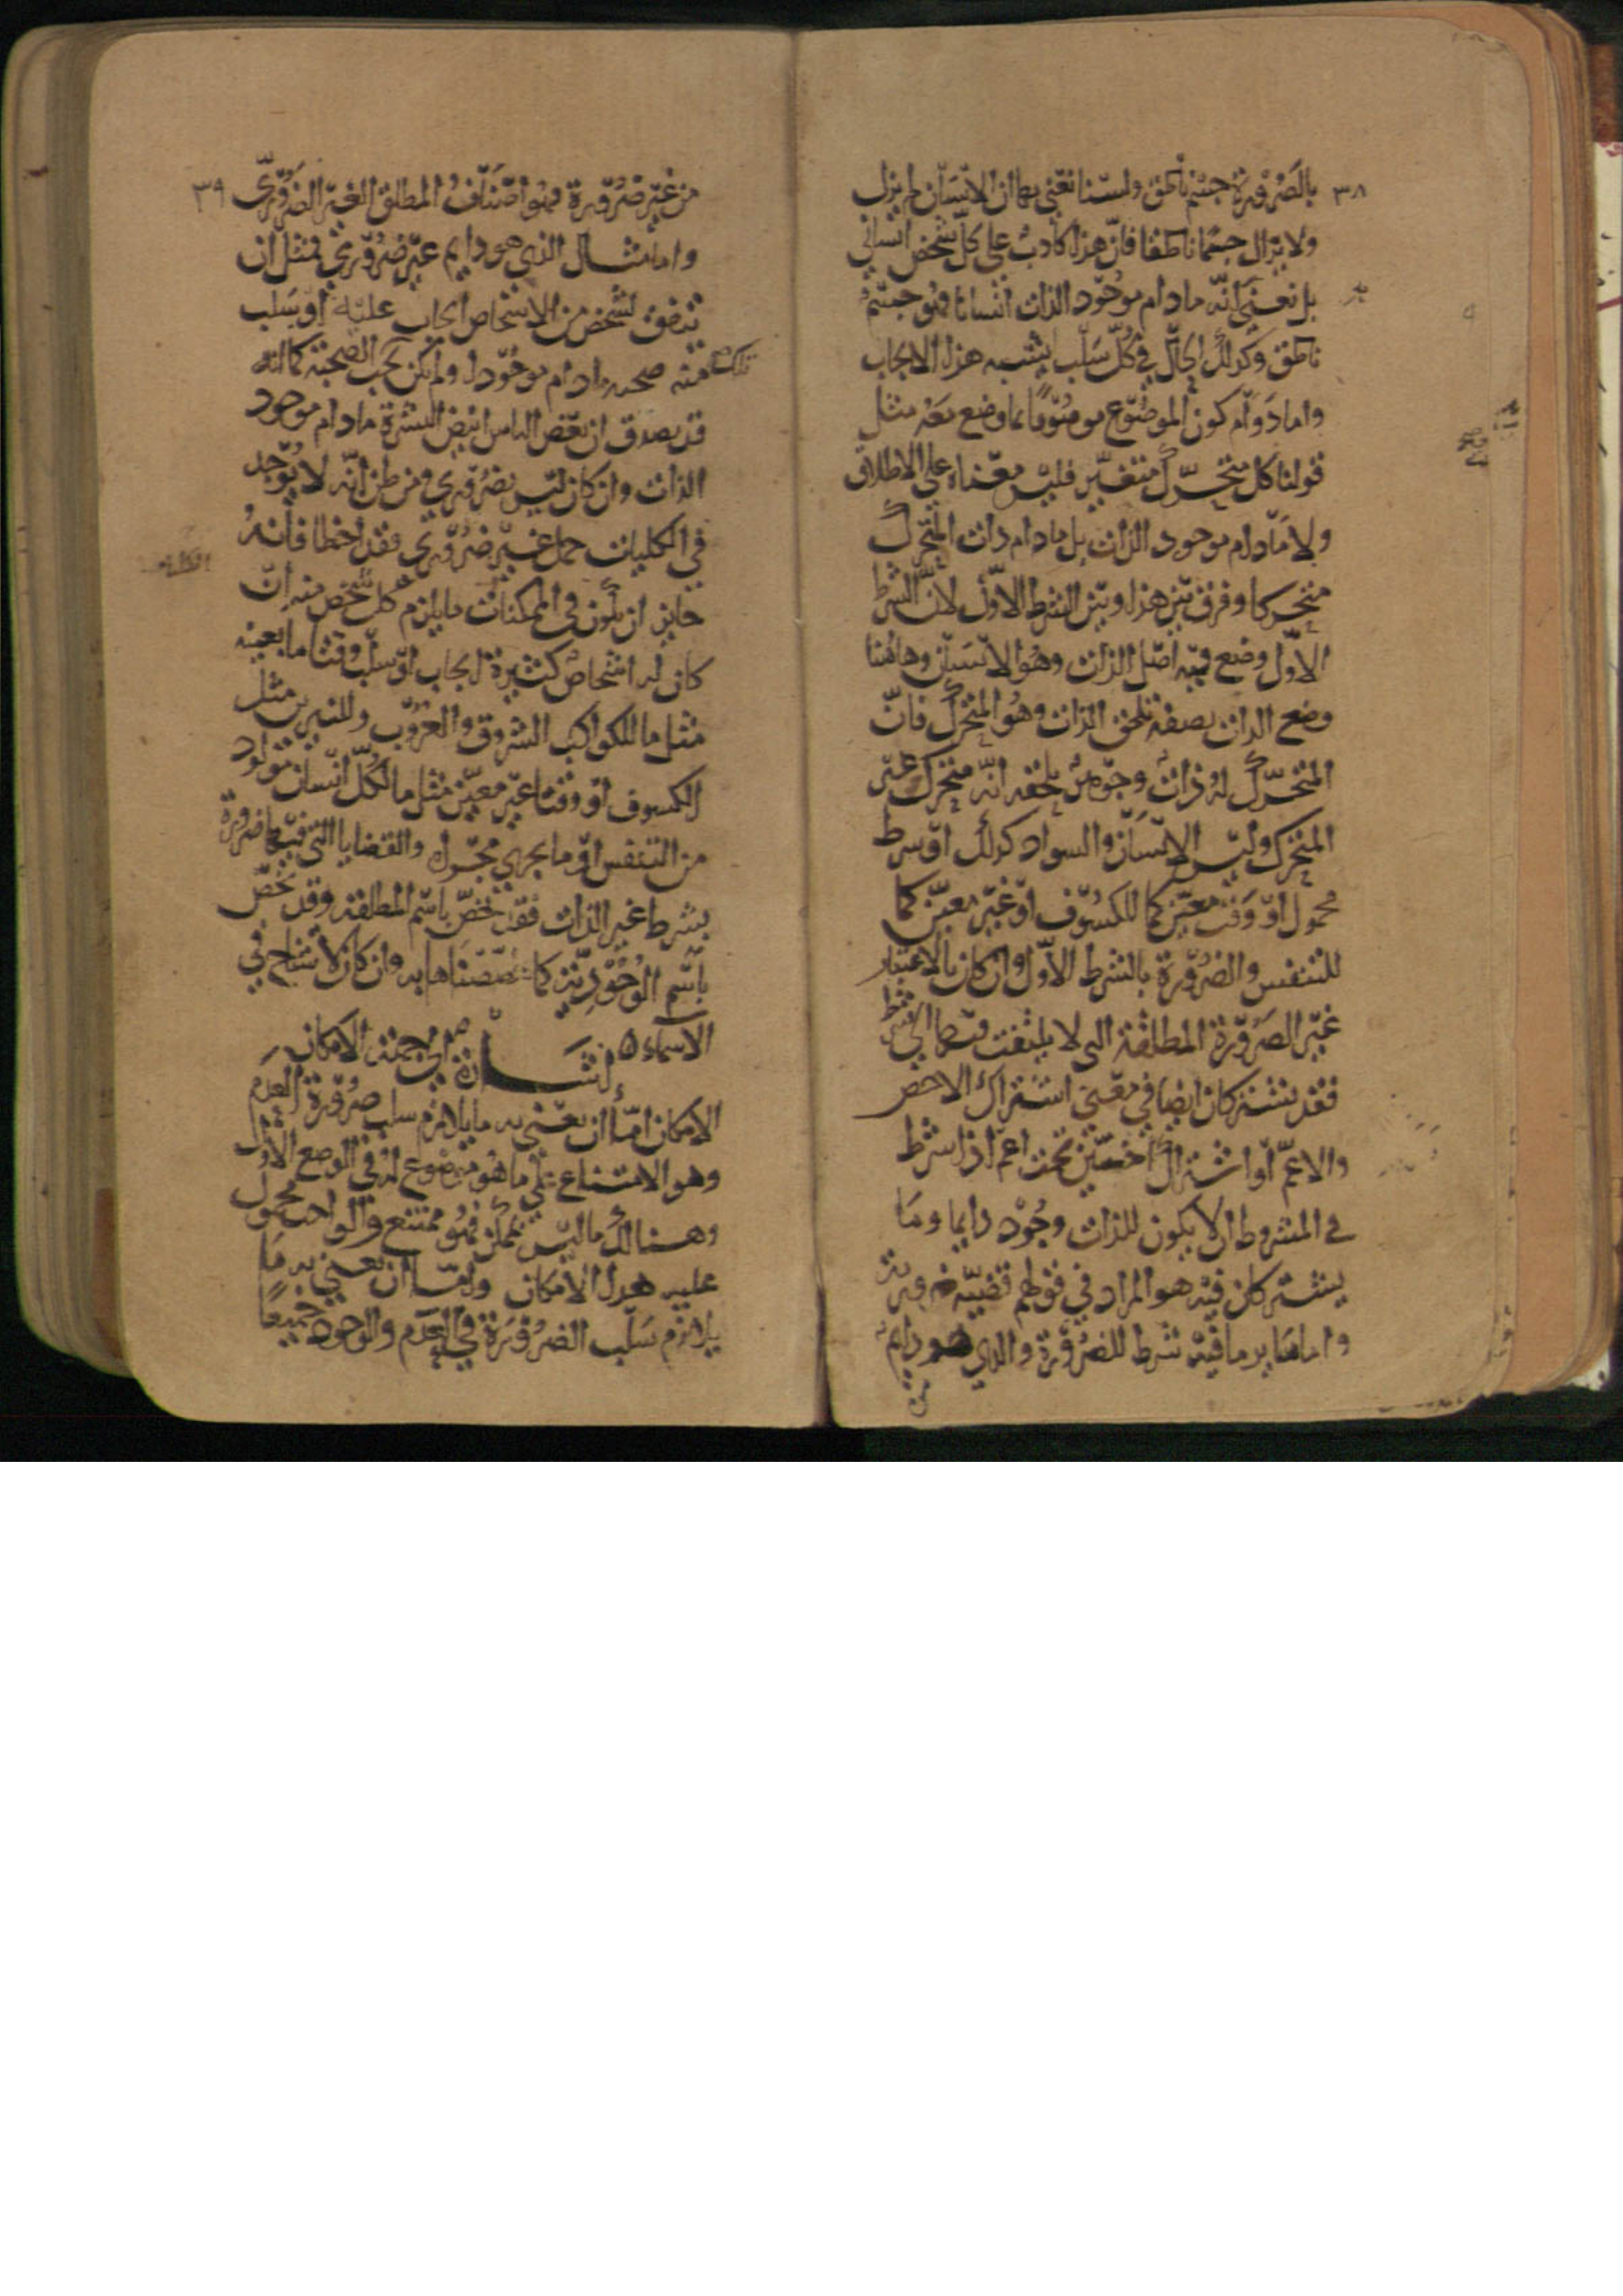 ٣٨
بالضرورة جسم ناطق ولسنا نعني بها ان الانسان لم يزل
ولا يزال جسما ناطقا فان هذا كاذب على كل شخص انساني
بل نعني انه ما دام موجود الذات انسانا فهو جسم
ناطق وكذلك الحال في كل سلب يشبه هذا الايجاب
واما دوام كون الموضوع موصوفا بما وضع معه مثل
قولنا كل متحرك متغير فليس معناه على الاطلاق
ولا ما دام موجود الذات بل ما دام ذات المتحرك
متحركا وفرق بين هذا وبين الشرط الاول لان الشرط
الاول وضع فيه اصل الذات وهو الانسان وهاهنا
وضع الذات بصفة تلحق الذات وهو المتحرك فان
المتحرك له ذات وجوهر يلحقه انه متحرك غير
المتحرك وليس الانسان والسواد كذلك او شرط
محمول او وقت معين كما للكسوف او غير معين كما
للتنفس والضرورة بالشرط الاول وان كان بالاعتبار
غير الضرورة المطلقة التي لا يلتفت فيها الى شرط
فقد تشتركان ايضا في معنى اشتراك الاخص
والاعم او اشتراك اخصين تحت اعم اذا شرط
في المشروط ان لا يكون للذات وجود دايما وما
يشتركان فيه هو المراد في قولهم قضية ضرورية
واما ساير ما فيه شرط للضرورة والذي هو دايم
من
٣٩
من غير ضرورة فهو اصناف المطلق الغير الضروري
واما مثال الذي هو دايم غير ضروري فمثل ان
يتفق لشخص من الاشخاص ايجاب عليه او سلب
منه صحبه ما دام موجودا ولم يكن تجب الصحبة كما انه
تلك
قد يصدق ان بعض الناس ابيض البشرة ما دام موجود
الذات وان كان ليس بضروري ومن ظن انه لا يوجد
في الكليات حمل غير ضروري فقد اخطا فانه
جايز ان يكون في الممكنات ما يلزم كل شخص منه ان
كان له اشخاص كثيرة ايجاب او سلب وقتا ما بعينه
مثل ما للكواكب الشروق والغروب وللنيرين مثل
الكسوف او وقتا غير معين مثل ما لكل انسان مولود
من التنفس او ما يجري مجراه والقضايا التي فيها ضرورة
بشرط غير الذات فقد تخص باسم المطلقة وقد تخص
باسم الوجودية كما خصصناها به وان كان لا تشاح في
الاسماء
اشارة الى جهة الامكان
الامكان اما ان يعنى به ما يلازم سلب ضرورة العدم
وهو الامتناع على ما هو موضوع له في الوضع الاول
وهنالك ما ليس بممكن فهو ممتنع والواجب محمول
عليه هذا الامكان واما ان يعنى به ما
يلازم سلب الضرورة في العدم والوجود جميعا